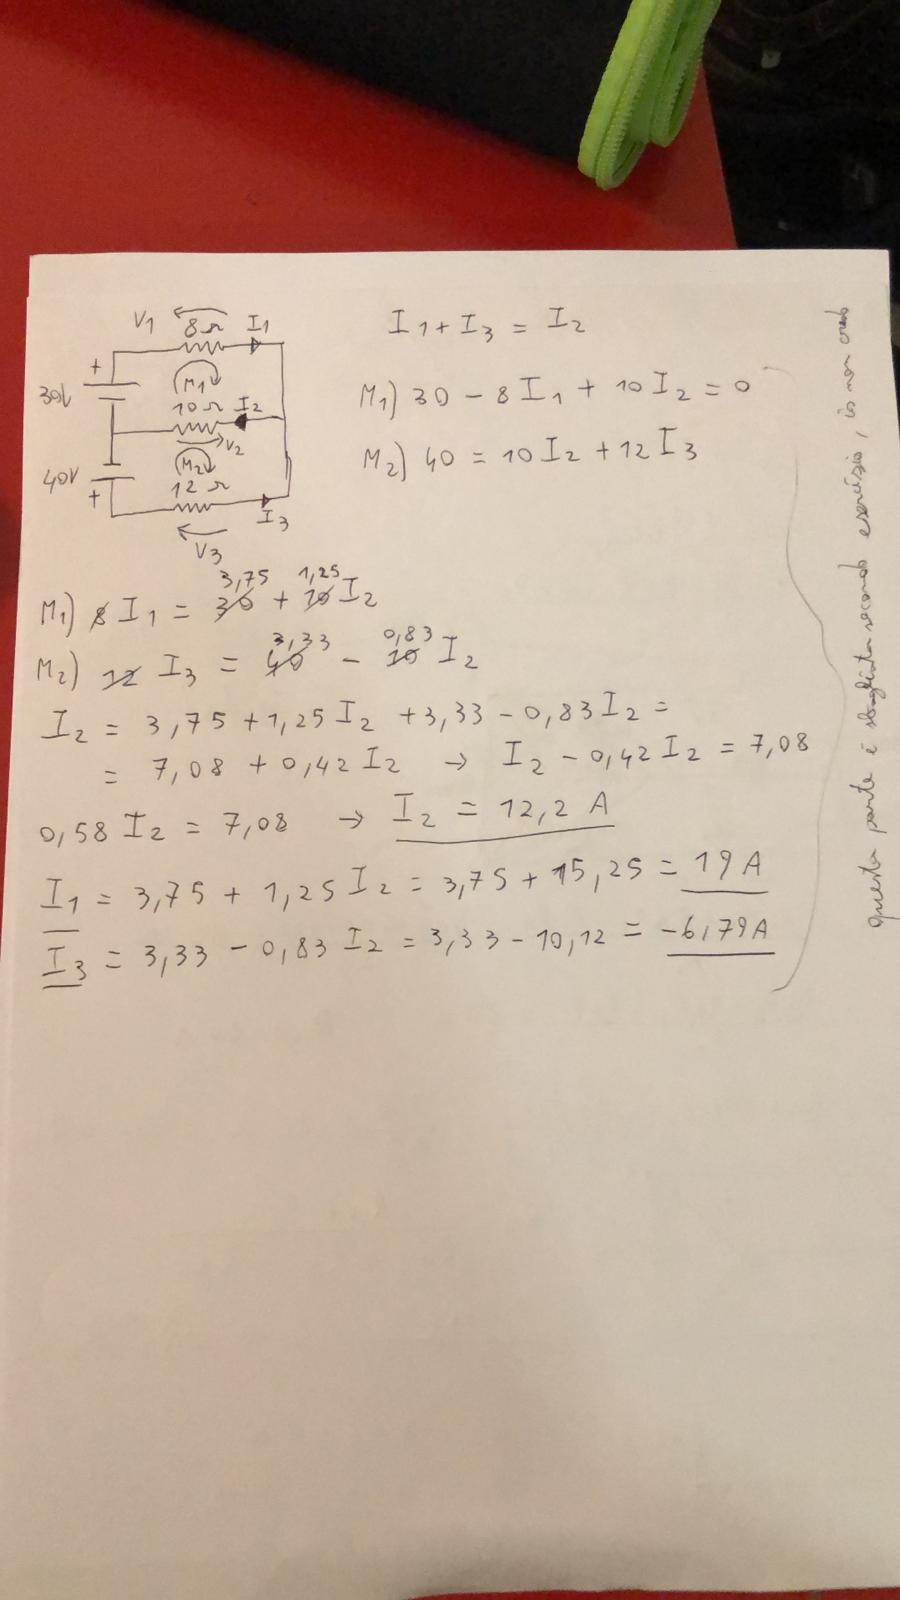 V1 8Ω I1
+
30V
M1
10Ω I2
V2
M2
40V
12Ω
+
I3
V3
I1 + I3 = I2
M1) 30 - 8I1 + 10I2 = 0
M2) 40 = 10I2 + 12I3
3,75 1,25
M1) 8 I1 = 30 + 10 I2
3,33 0,83
M2) 12 I3 = 40 - 10 I2
I2 = 3,75 + 1,25 I2 + 3,33 - 0,83 I2 =
= 7,08 + 0,42 I2 → I2 - 0,42 I2 = 7,08
0,58 I2 = 7,08 → I2 = 12,2 A
I1 = 3,75 + 1,25 I2 = 3,75 + 15,25 = 19 A
I3 = 3,33 - 0,83 I2 = 3,33 - 10,12 = -6,79 A
questa parte è sbagliata secondo esercizio, io non credo